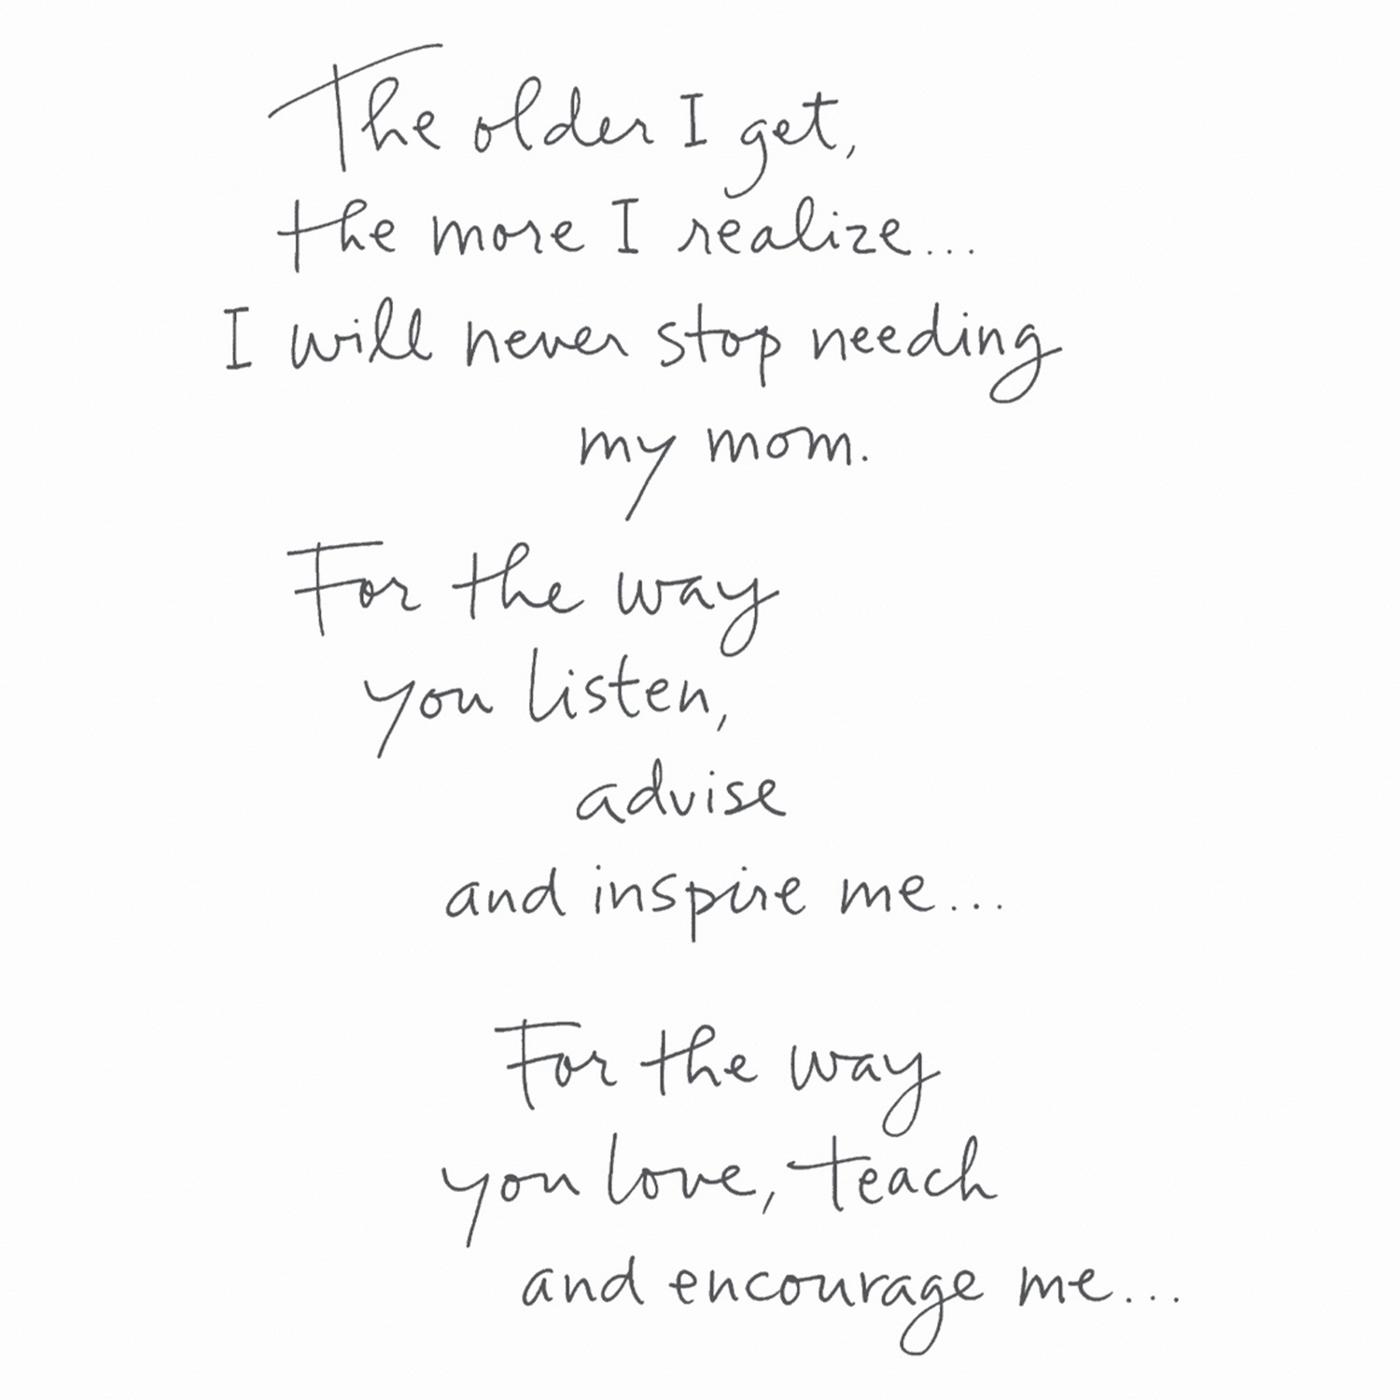 The older I get,
the more I realize...
I will never stop needing
my mom.
For the way
you listen,
advise
and inspire me...
For the way
you love, teach
and encourage me...